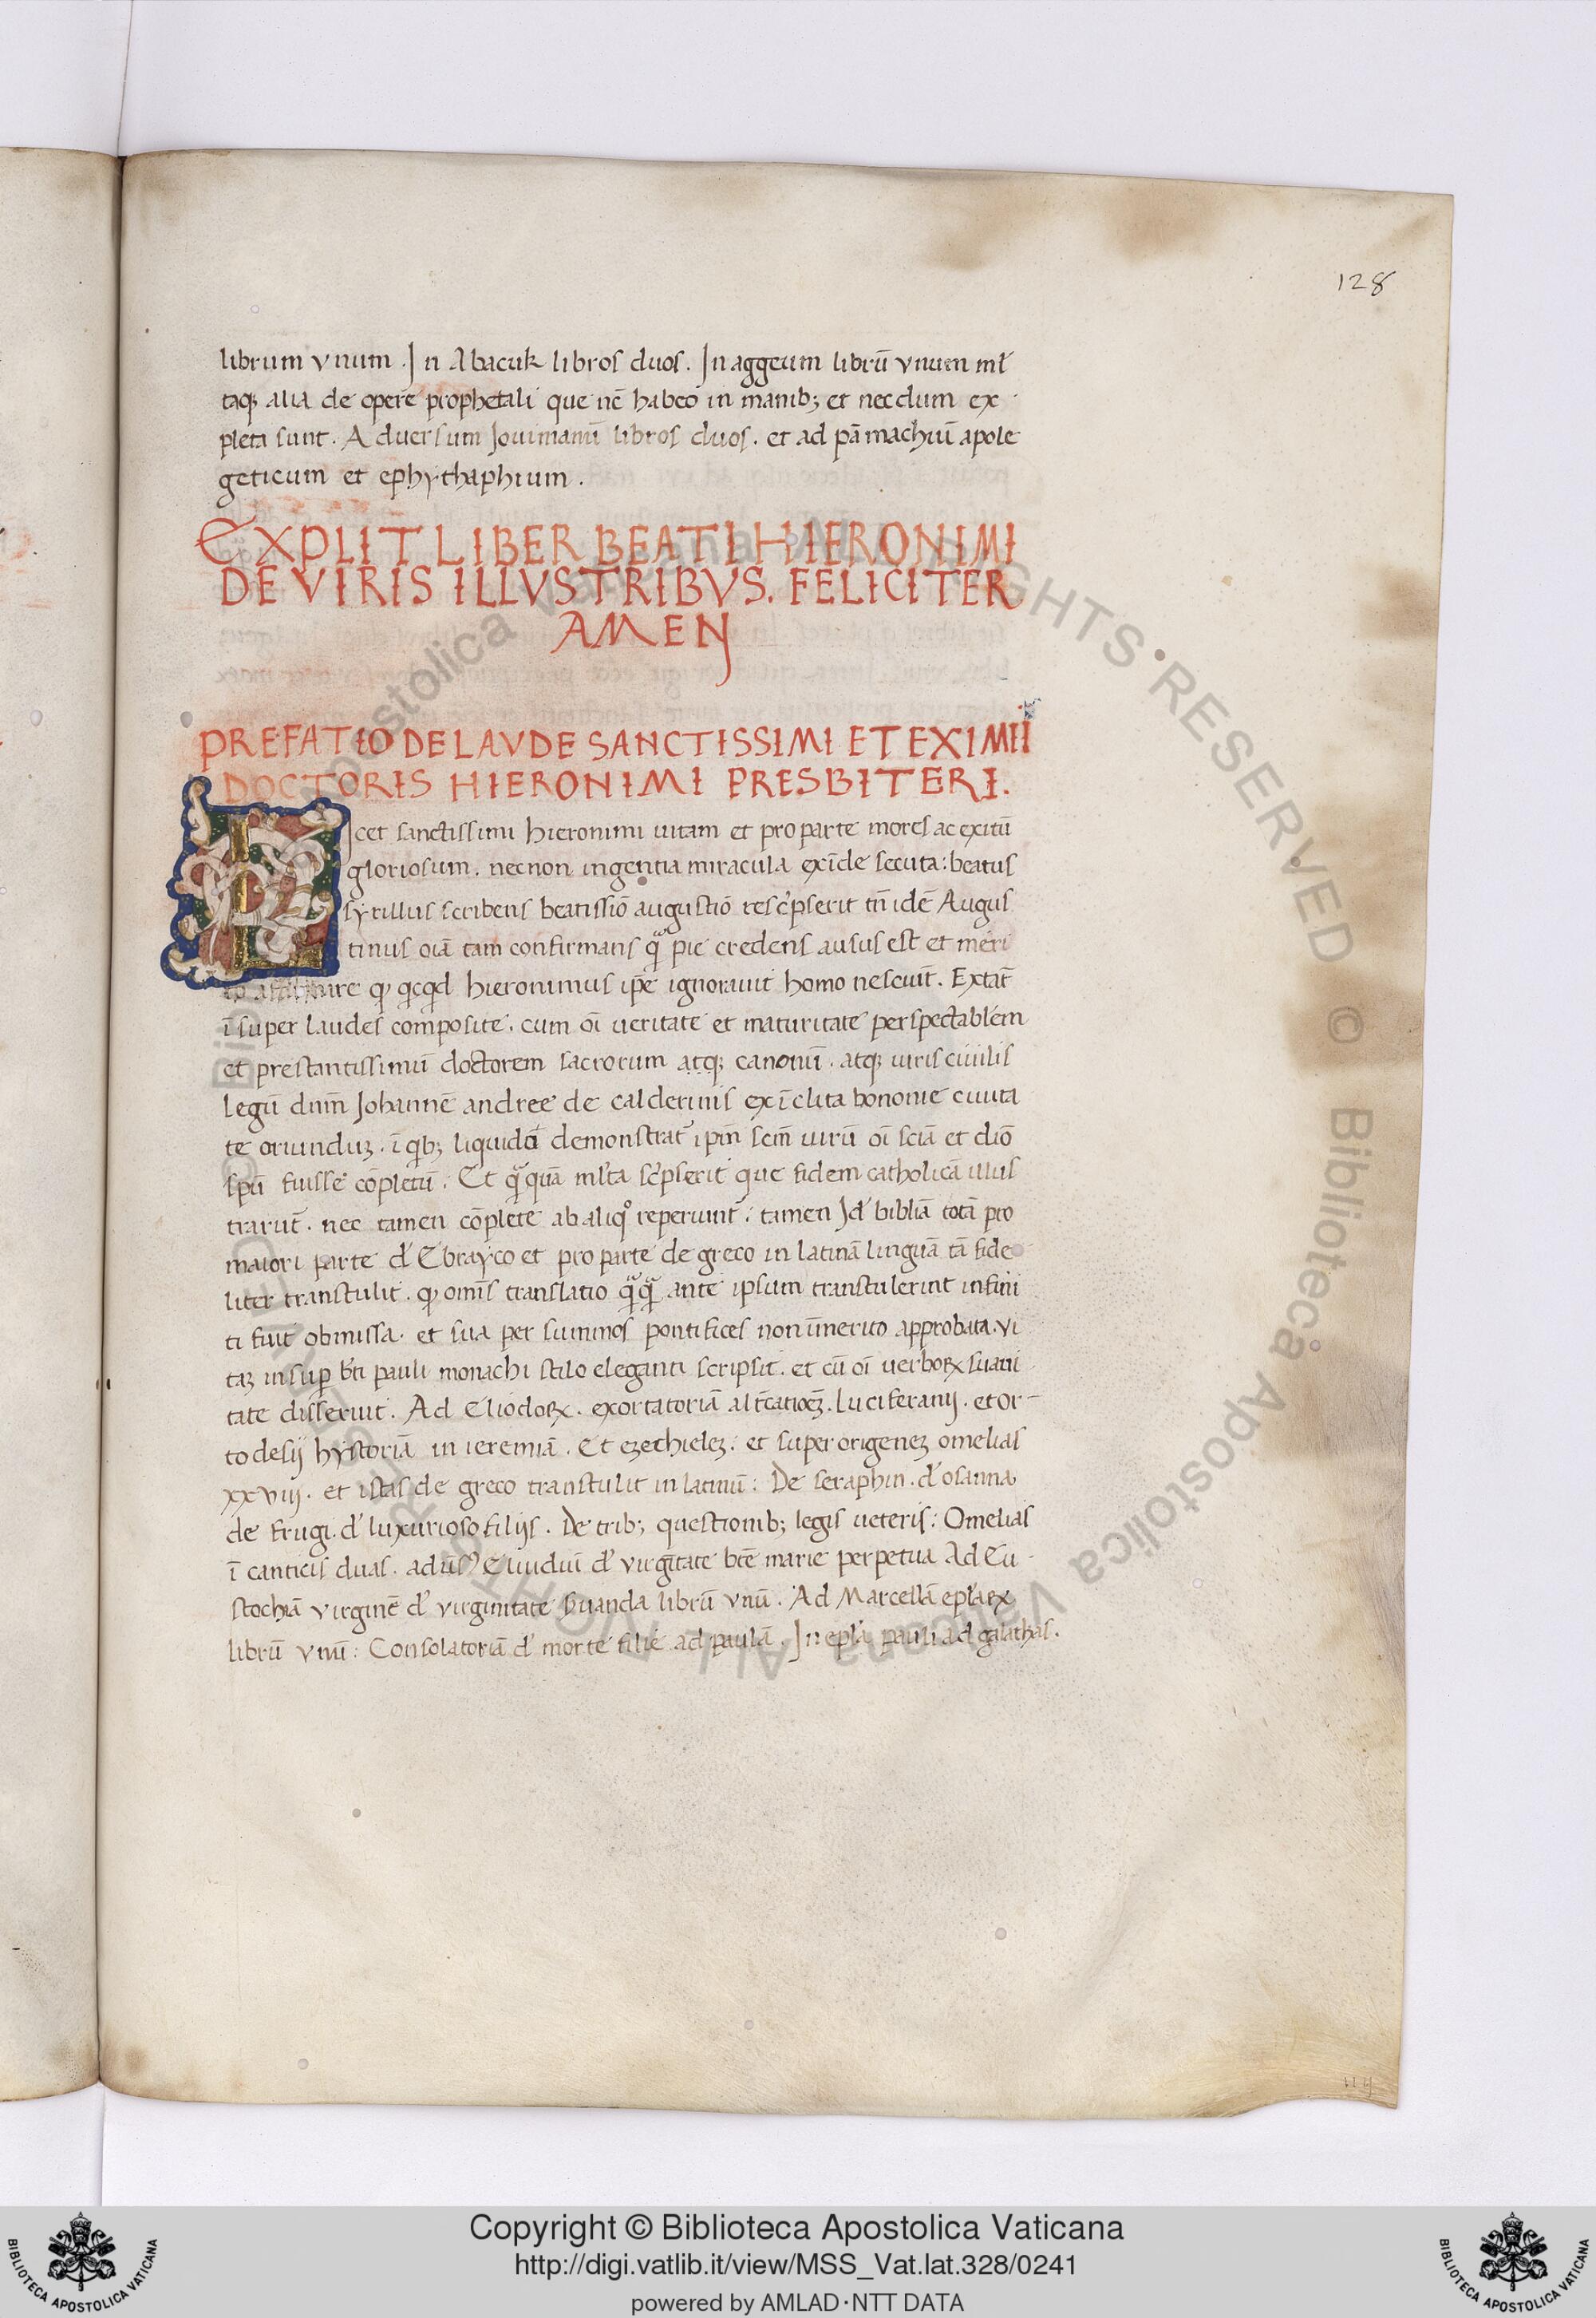 128
librum vnum . In Abacuk libros duos . In aggeum librū vnum ml̄
taq; alia de opere prophetali que nc̄ habeo in manib; et necdum ex
pleta sunt . Aduersum Iouinianū libros duos . et ad pāmachiū apole
geticum et ephythaphium .
EXPLIT LIBER BEATI HIERONIMI
DE VIRIS ILLVSTRIBVS . FELICITER
AMEN
PREFATIO DE LAVDE SANCTISSIMI ET EXIMII
DOCTORIS HIERONIMI PRESBITERI .
Licet sanctissimi hieronimi uitam et pro parte mores ac exitū
gloriosum . necnon ingentia miracula exīde secuta : beatus
syrillus scribens beatissīo augustīo resc̄pserit tn̄ idē Augus
tinus oīa tam confirmans q̄ pie credens ausus est et meri
to affirmare qͥ qcqd hieronimus ipē ignorauit homo nesciuit . Extāt
īsuper laudes composite . cum oī ueritate et maturitate perspectabilem
et prestantissimū doctorem sacrorum atq; canonū . atq; uiris ciuilis
legū dnm̄ Iohannē andree de calderinis ex īclita bononie ciuita
te oriunduʒ . ī qib; liquido demonstrat̄ ipm̄ scm̄ uirū oī sciā et dīo
spū fuisse cōpletū . Et q̄quā ml̄ta sc̄pserit que fidem catholicā illus
trarūt . nec tamen cōplete ab aliqͦ reperiunt̄ : tamen Id̄ bibliā totā pro
maiori parte d̄ Ebrayco et pro parte de greco in latinā linguā tā fide
liter transtulit . qͥ omīs translatio q̄q̄ ante ipsum transtulerint infini
ti fuit obmissa . et sua per summos pontifices non īmerito approbata . vi
taʒ insup bt̄i pauli monachi stilo eleganti scripsit . et cū oī uerboꝝ suaui
tate disseruit . Ad Eliodoꝝ . exortatoriā altēcatioēʒ . Luciferanij . et or-
todesij hystoriā in ieremiā . Et ezechieleʒ : et super origeneʒ omelias
xxviij . et istas de greco transtulit in latinū : De seraphin . d̄ osanna
de frugi . d̄ luxurioso filijs . De trib; questionib; legis ueteris : Omelias
ī canticis duas . adus Eluidiū d̄ virgītate btē marie perpetua Ad Eu
stochiā virginē d̄ virginitate s̄uanda librū vnū . Ad Marcellā eplaꝝ
librū vnū : Consolatoriā d̄ morte filie ad paulā . In epla pauli ad galathas .
Copyright © Biblioteca Apostolica Vaticana
http://digi.vatlib.it/view/MSS_Vat.lat.328/0241
powered by AMLAD·NTT DATA